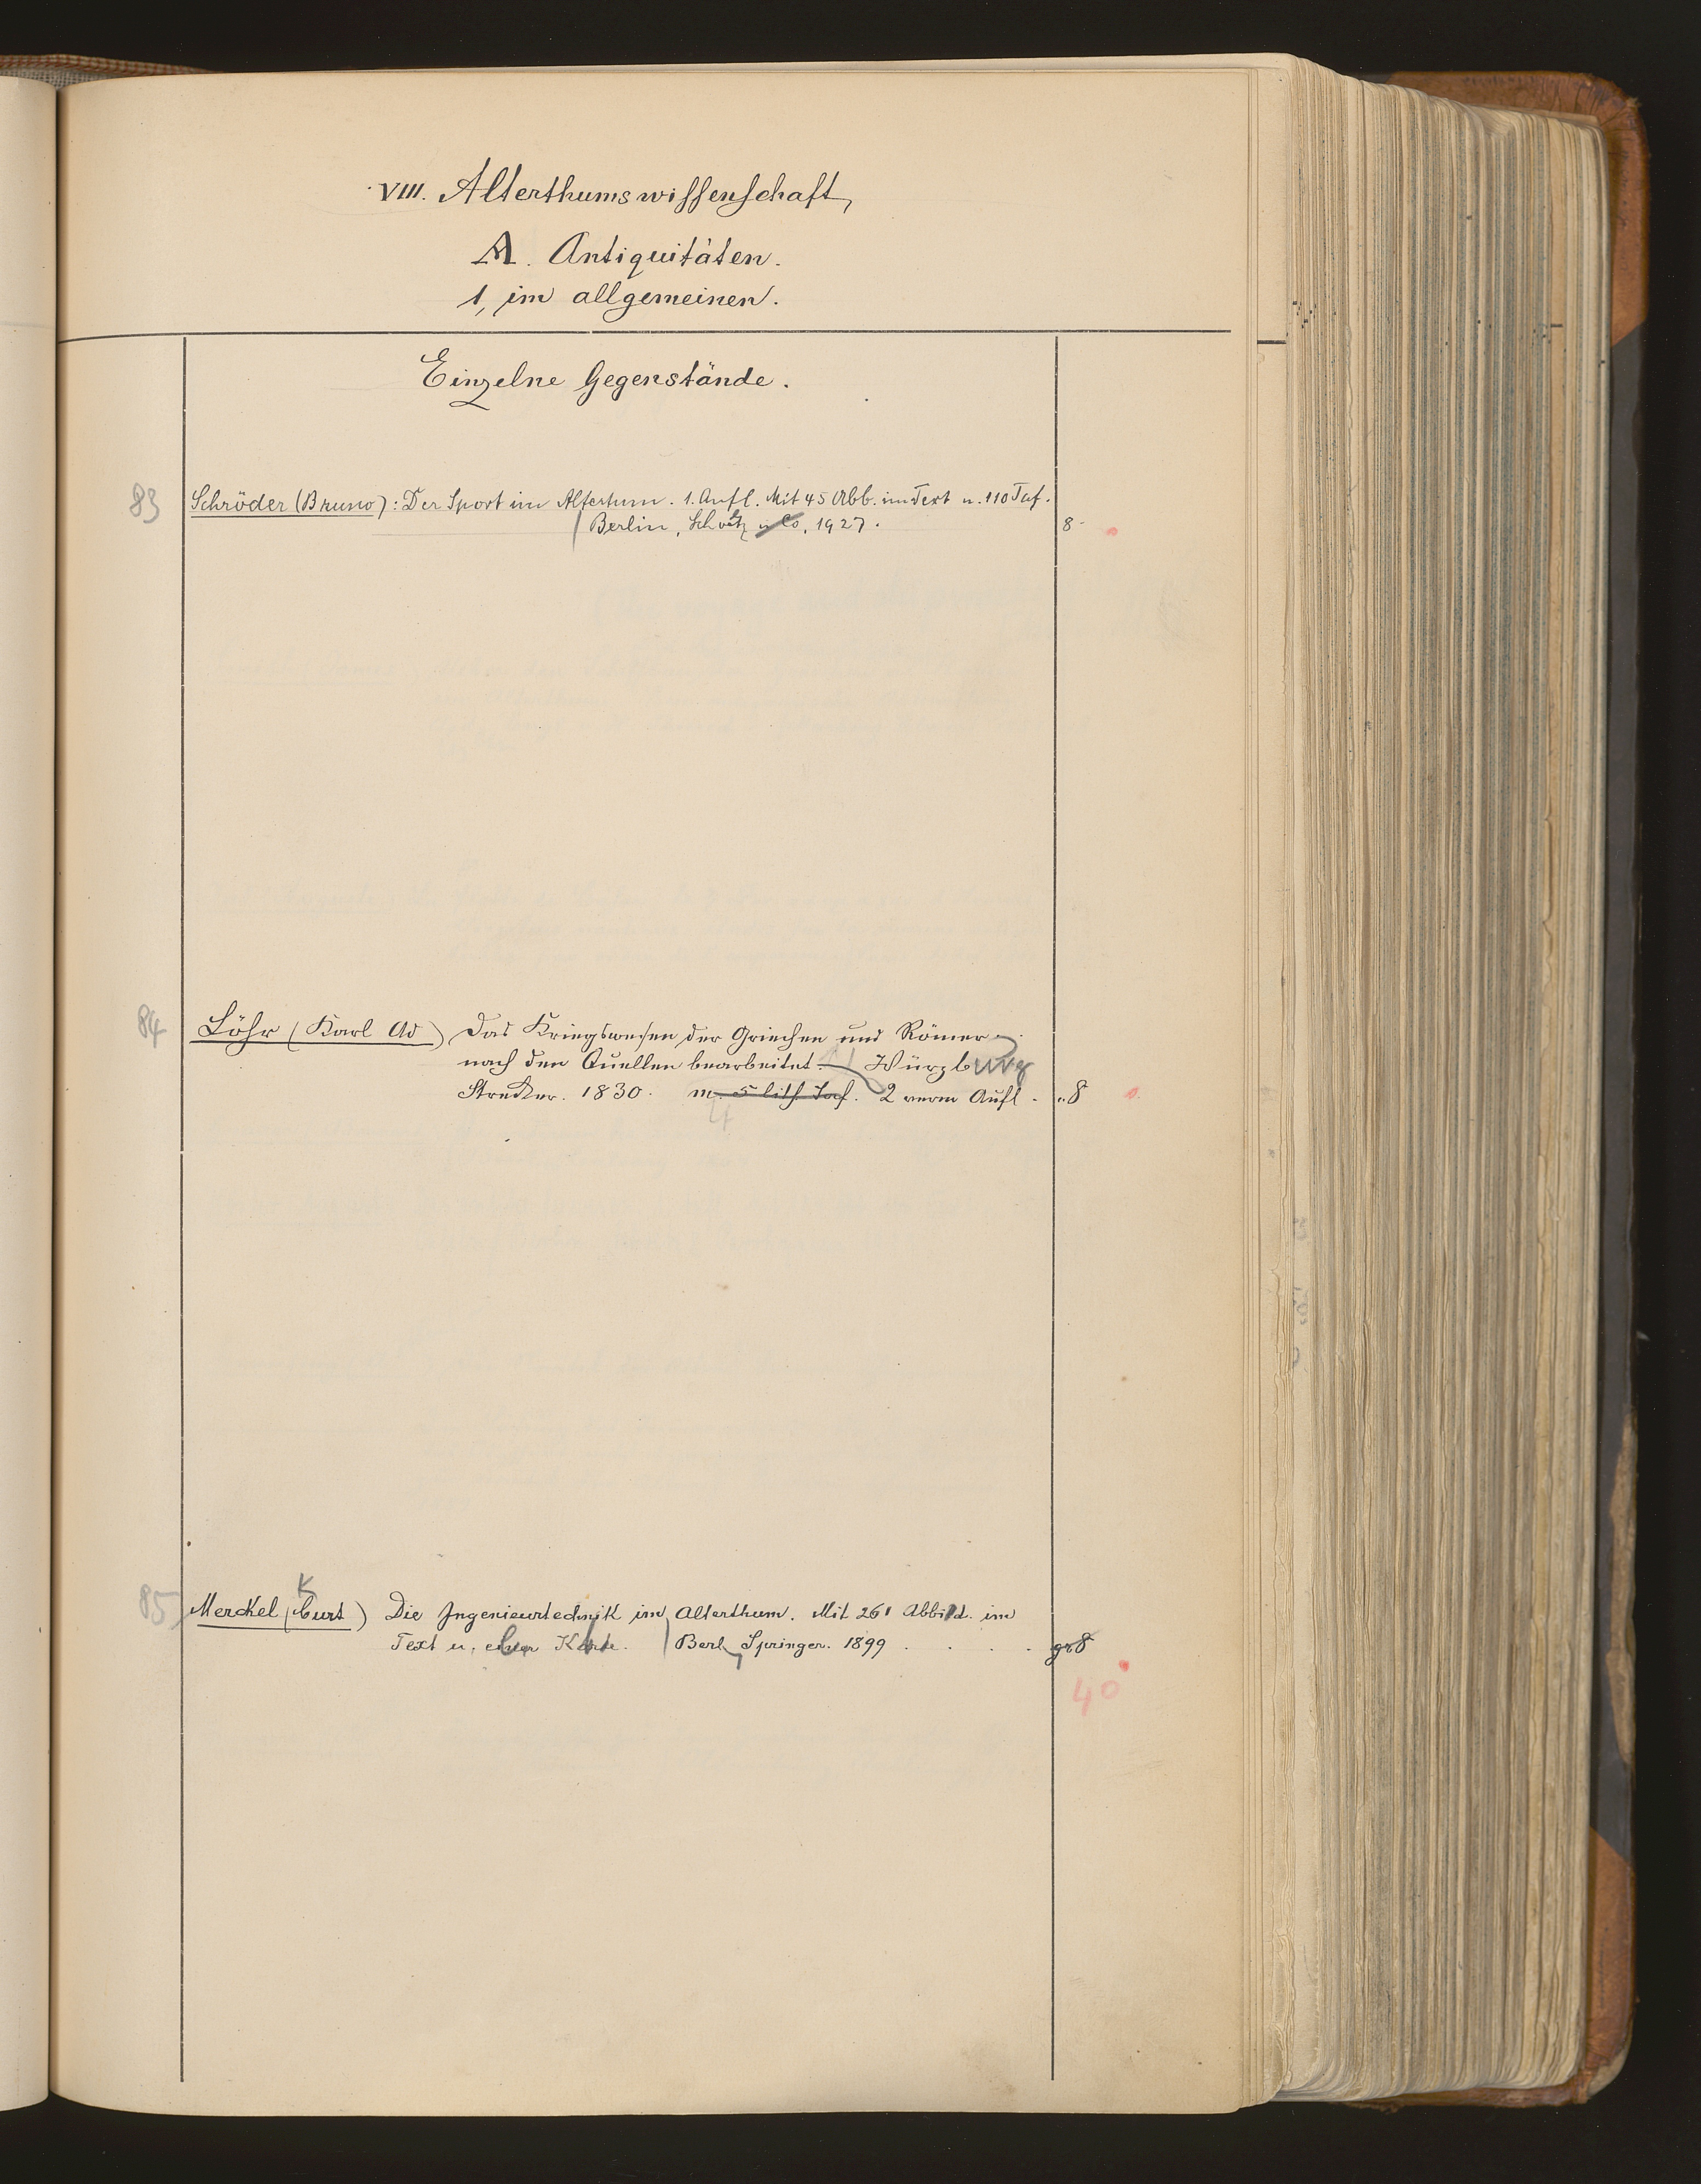 VIII. Alterthumswissenschaft,
A. Antiquitäten.
1, im allgemeinen.
Einzelne Gegenstände.
83 Schröder (Bruno): Der Sport im Altertum. 1. Aufl. Mit 45 Abb. im Text u. 110 Taf.
Berlin, Schoetz u Co, 1927. 8
84 Löhr (Karl Ad) Das Kriegswesen der Griechen und Römer
nach den Quellen bearbeitet. Würzburg
Strecker. 1830. m. 5 lith Taf. 2 verm Aufl. 8
4
K
85 Merckel (Curt) Die Ingenieurtechnik im Alterthum. Mit 261 Abbild. im
Text u. einer Karte. Berl, Springer. 1899 . . . . gr8
40